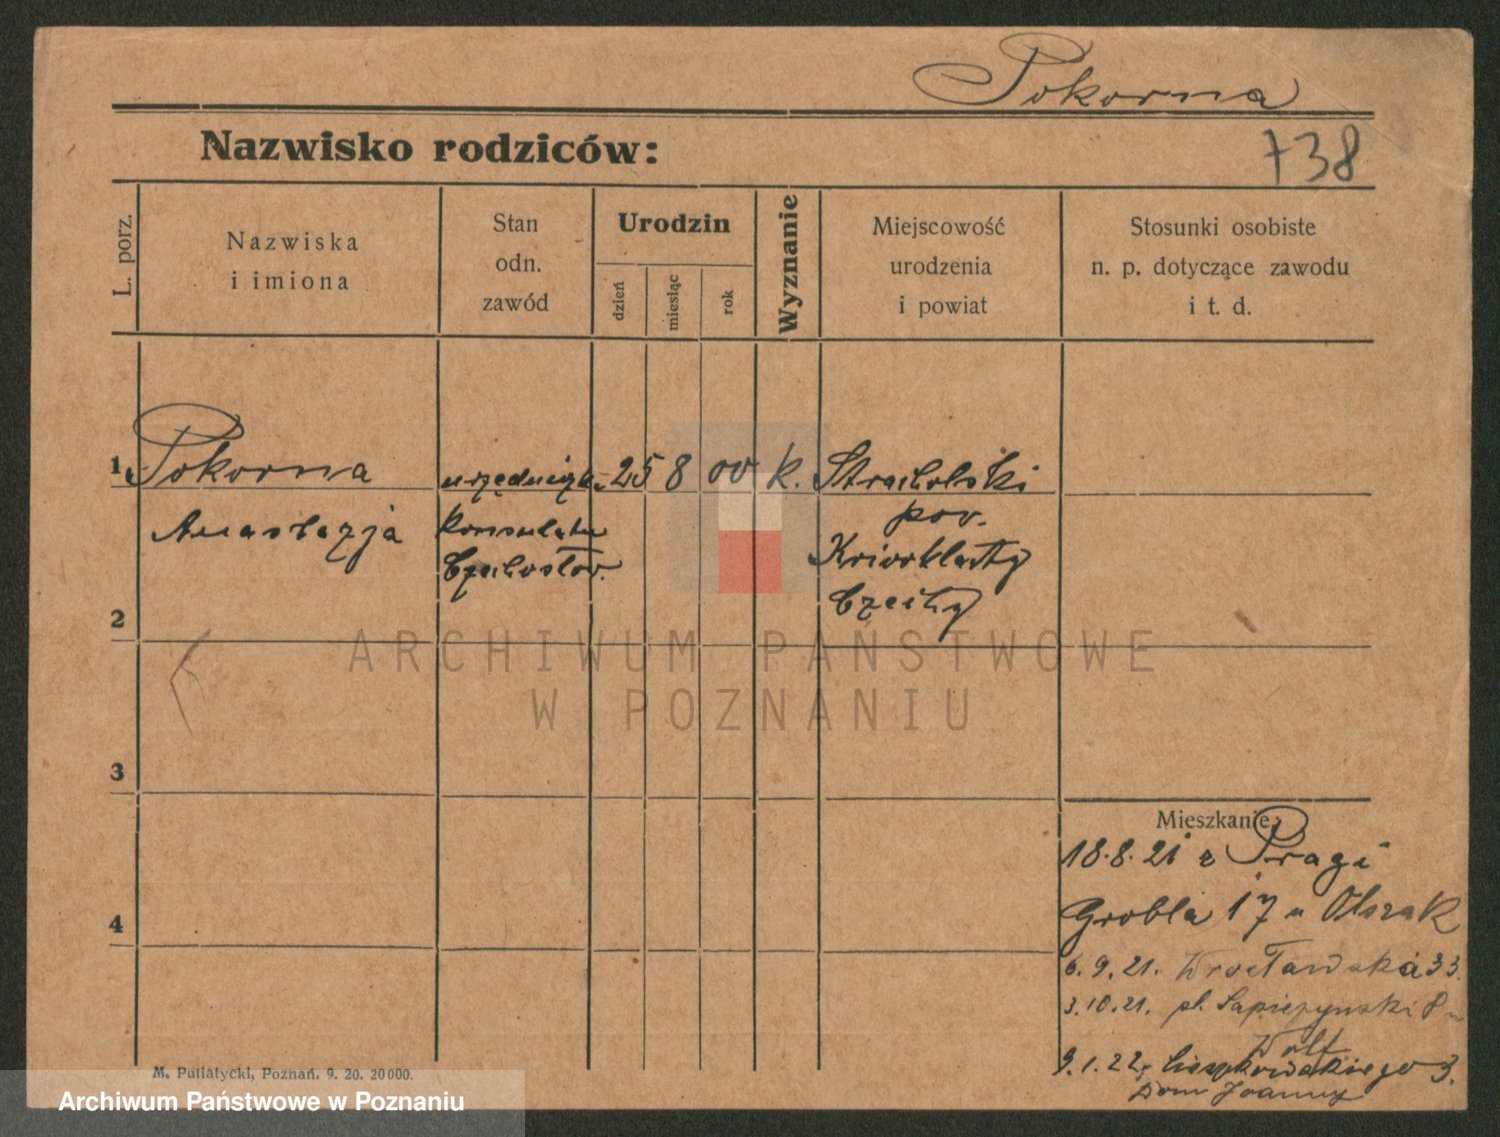 Pokorna
Nazwisko rodziców:
738
L. porz.
Nazwiska
i imiona
Stan
odn.
zawód
Urodzin
dzień
miesiąc
rok
Wyznanie
Miejscowość
urodzenia
i powiat
Stosunki osobiste
n. p. dotyczące zawodu
i t. d.
1 Pokorna
Anastazja
konsulatu
Czechosłow.
25 8 00 k.
pov.
Czechy
2
3
4
Mieszkanie
18.8.21 z Pragi
Grobla 17 u Olszak
6.9.21. Wrocławska 33.
3.10.21. pl. Sapieżyński 8
Wolf
9.1.22. 3.
Dom Joanny
M. Putiatycki, Poznań. 9. 20. 20000.
ARCHIWUM PAŃSTWOWE
W POZNANIU
Archiwum Państwowe w Poznaniu